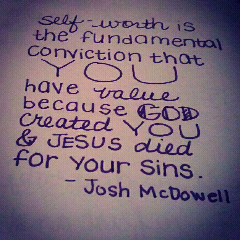 self-worth is
the fundamental
conviction that
YOU
have value
because GOD
created YOU
& JESUS died
for your sins.
- Josh McDowell